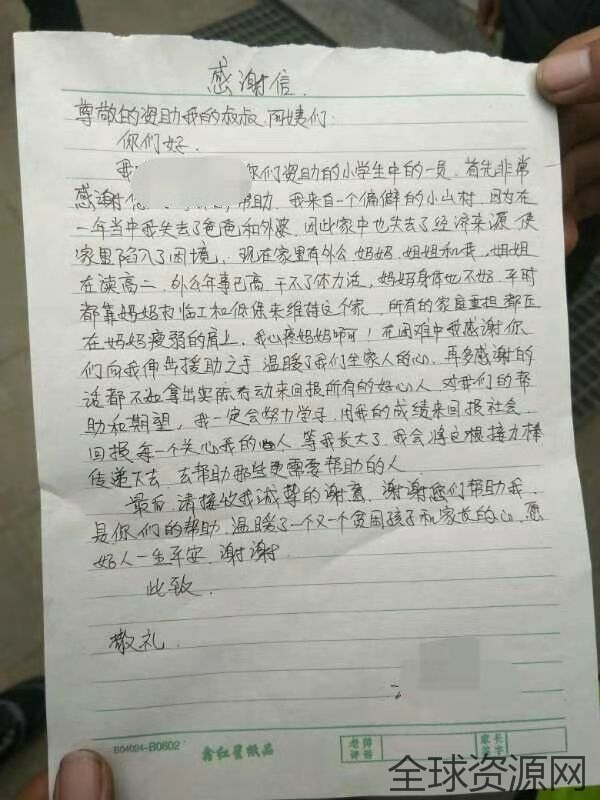 感谢信.
尊敬的资助我的叔叔.阿姨们:
你们好.
我 你们资助的小学生中的一员.首先非常
感谢 帮助.我来自一个偏僻的小山村.因为在
一年当中我失去了爸爸和外婆.因此家中也失去了经济来源.使
家里陷入了困境.现在家里有外公.妈妈.姐姐和我.姐姐
在读高二.外公年事已高.干不了体力活,妈妈身体也不好.平时
都靠妈妈打临工和低保来维持这个家.所有的家庭重担都压
在妈妈瘦弱的肩上.我心疼妈妈啊!在困难中我感谢你
们向我伸出援助之手.温暖了我们全家人的心.再多感谢的
话都不如拿出实际行动来回报所有的好心人.对我们的帮
助和期望,我一定会努力学习.用我的成绩来回报社会
回报每一个关心我的人.等我长大了.我会将这根接力棒
传递下去.去帮助那些更需要帮助的人.
最后.请接收我诚挚的谢意.谢谢您们帮助我.
是你们的帮助.温暖了一个又一个贫困孩子和家长的心.愿
好人一生平安.谢谢.
此致.
敬礼.
B04024-B0602 鑫红星纸品 老师评语 家长签字
全球资源网